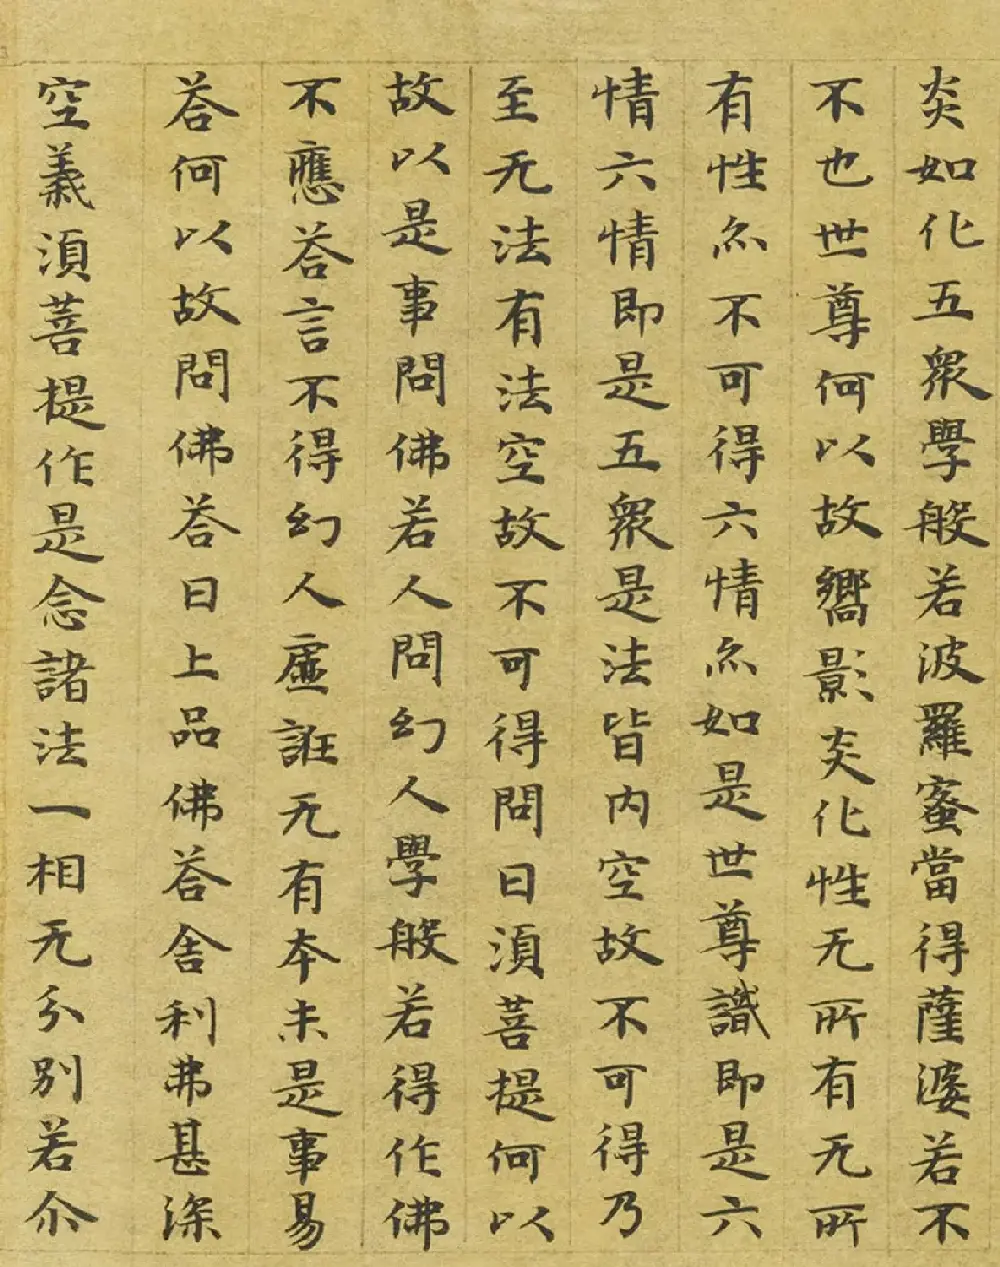 炎如化五衆學般若波羅蜜當得薩婆若不
不也世尊何以故嚮影炎化性无所有无所
有性亦不可得六情亦如是世尊識即是六
情六情即是五衆是法皆内空故不可得乃
至无法有法空故不可得問曰湏菩提何以
故以是事問佛若人問幻人學般若得作佛
不應荅言不得幻人虛誑无有本末是事易
荅何以故問佛荅曰上品佛荅舍利弗甚深
空義湏菩提作是念諸法一相无分別若尒